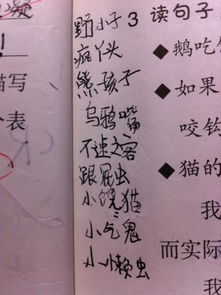 野小子
疯丫头
熊孩子
乌鸦嘴
不速之客
跟屁虫
小馋猫
小气鬼
小小懒虫
！
写
表
3 读句子
◆鹅吃
◆如果
咬钩
◆猫的
我
而实际
我